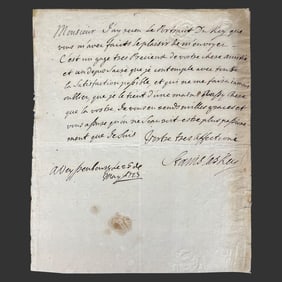 Monsieur J'ay receu le Portrait Du Roy que
vous m'avez fait le plaisir de m'envoyer
C'est un gage tres Precieux de votre chere Amitié
et un depos Sacré que je contemple avec toute
la Satisfaction possible et qui ne me fait
oublier que je le tient d'une main aussy chere
que la votre. Je vous en rends mille graces et
vous assure qu'on ne Scauroit estre plus
ment que Je Suis
Votre tres Affectioné
le 25 de
May 1723
Stanislas Roy